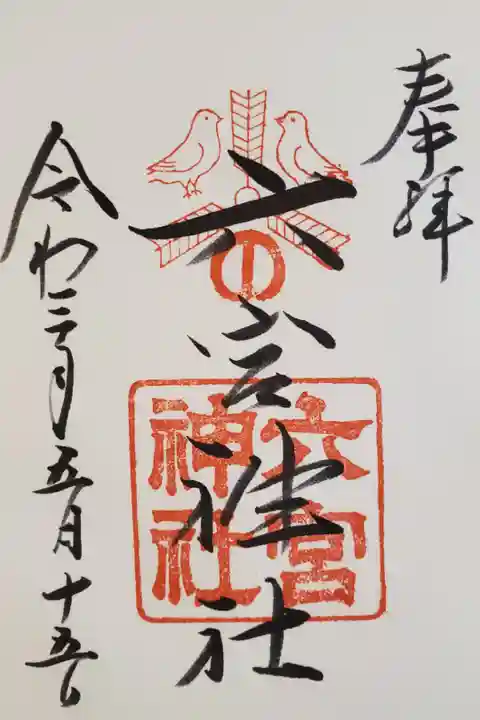 奉拝
六宮神社
六宮
神社
令和三年五月十五日